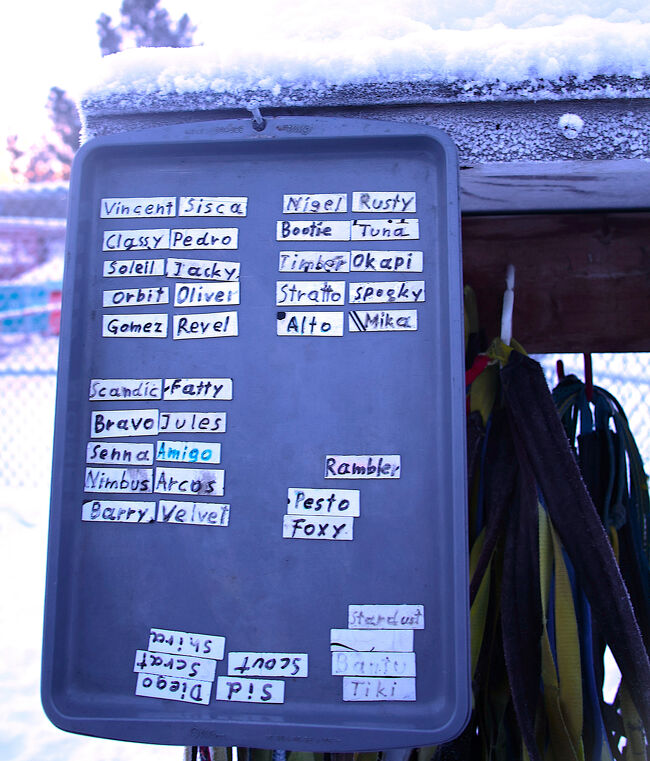 Vincent Sisca
Classy Pedro
Soleil Jacky
Orbit Oliver
Gomez Revel
Nigel Rusty
Bootie Tuna
Timber Okapi
Stratto Spooky
Alto Mika
Scandic Fatty
Bravo Jules
Senna Amigo
Nimbus Arcos
Barry Velvet
Rambler
Pesto
Foxy
Shira
Scrat Scout
Diego Sid
Stardust
Bantu
Tiki